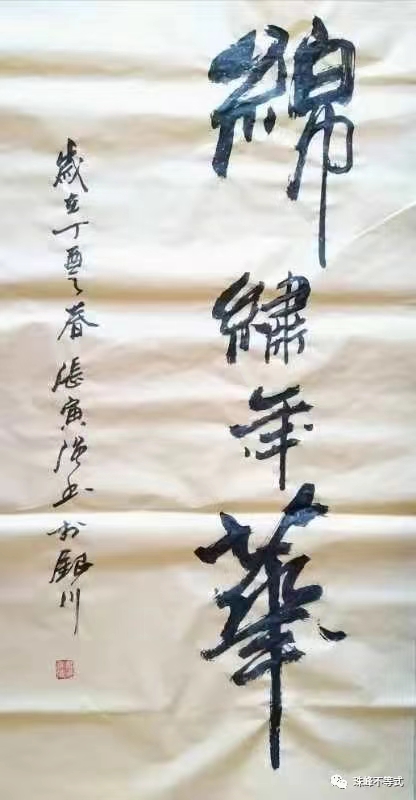 綿繡年華
歲在丁酉之春 張寅 书於銀川
珠峰不等式